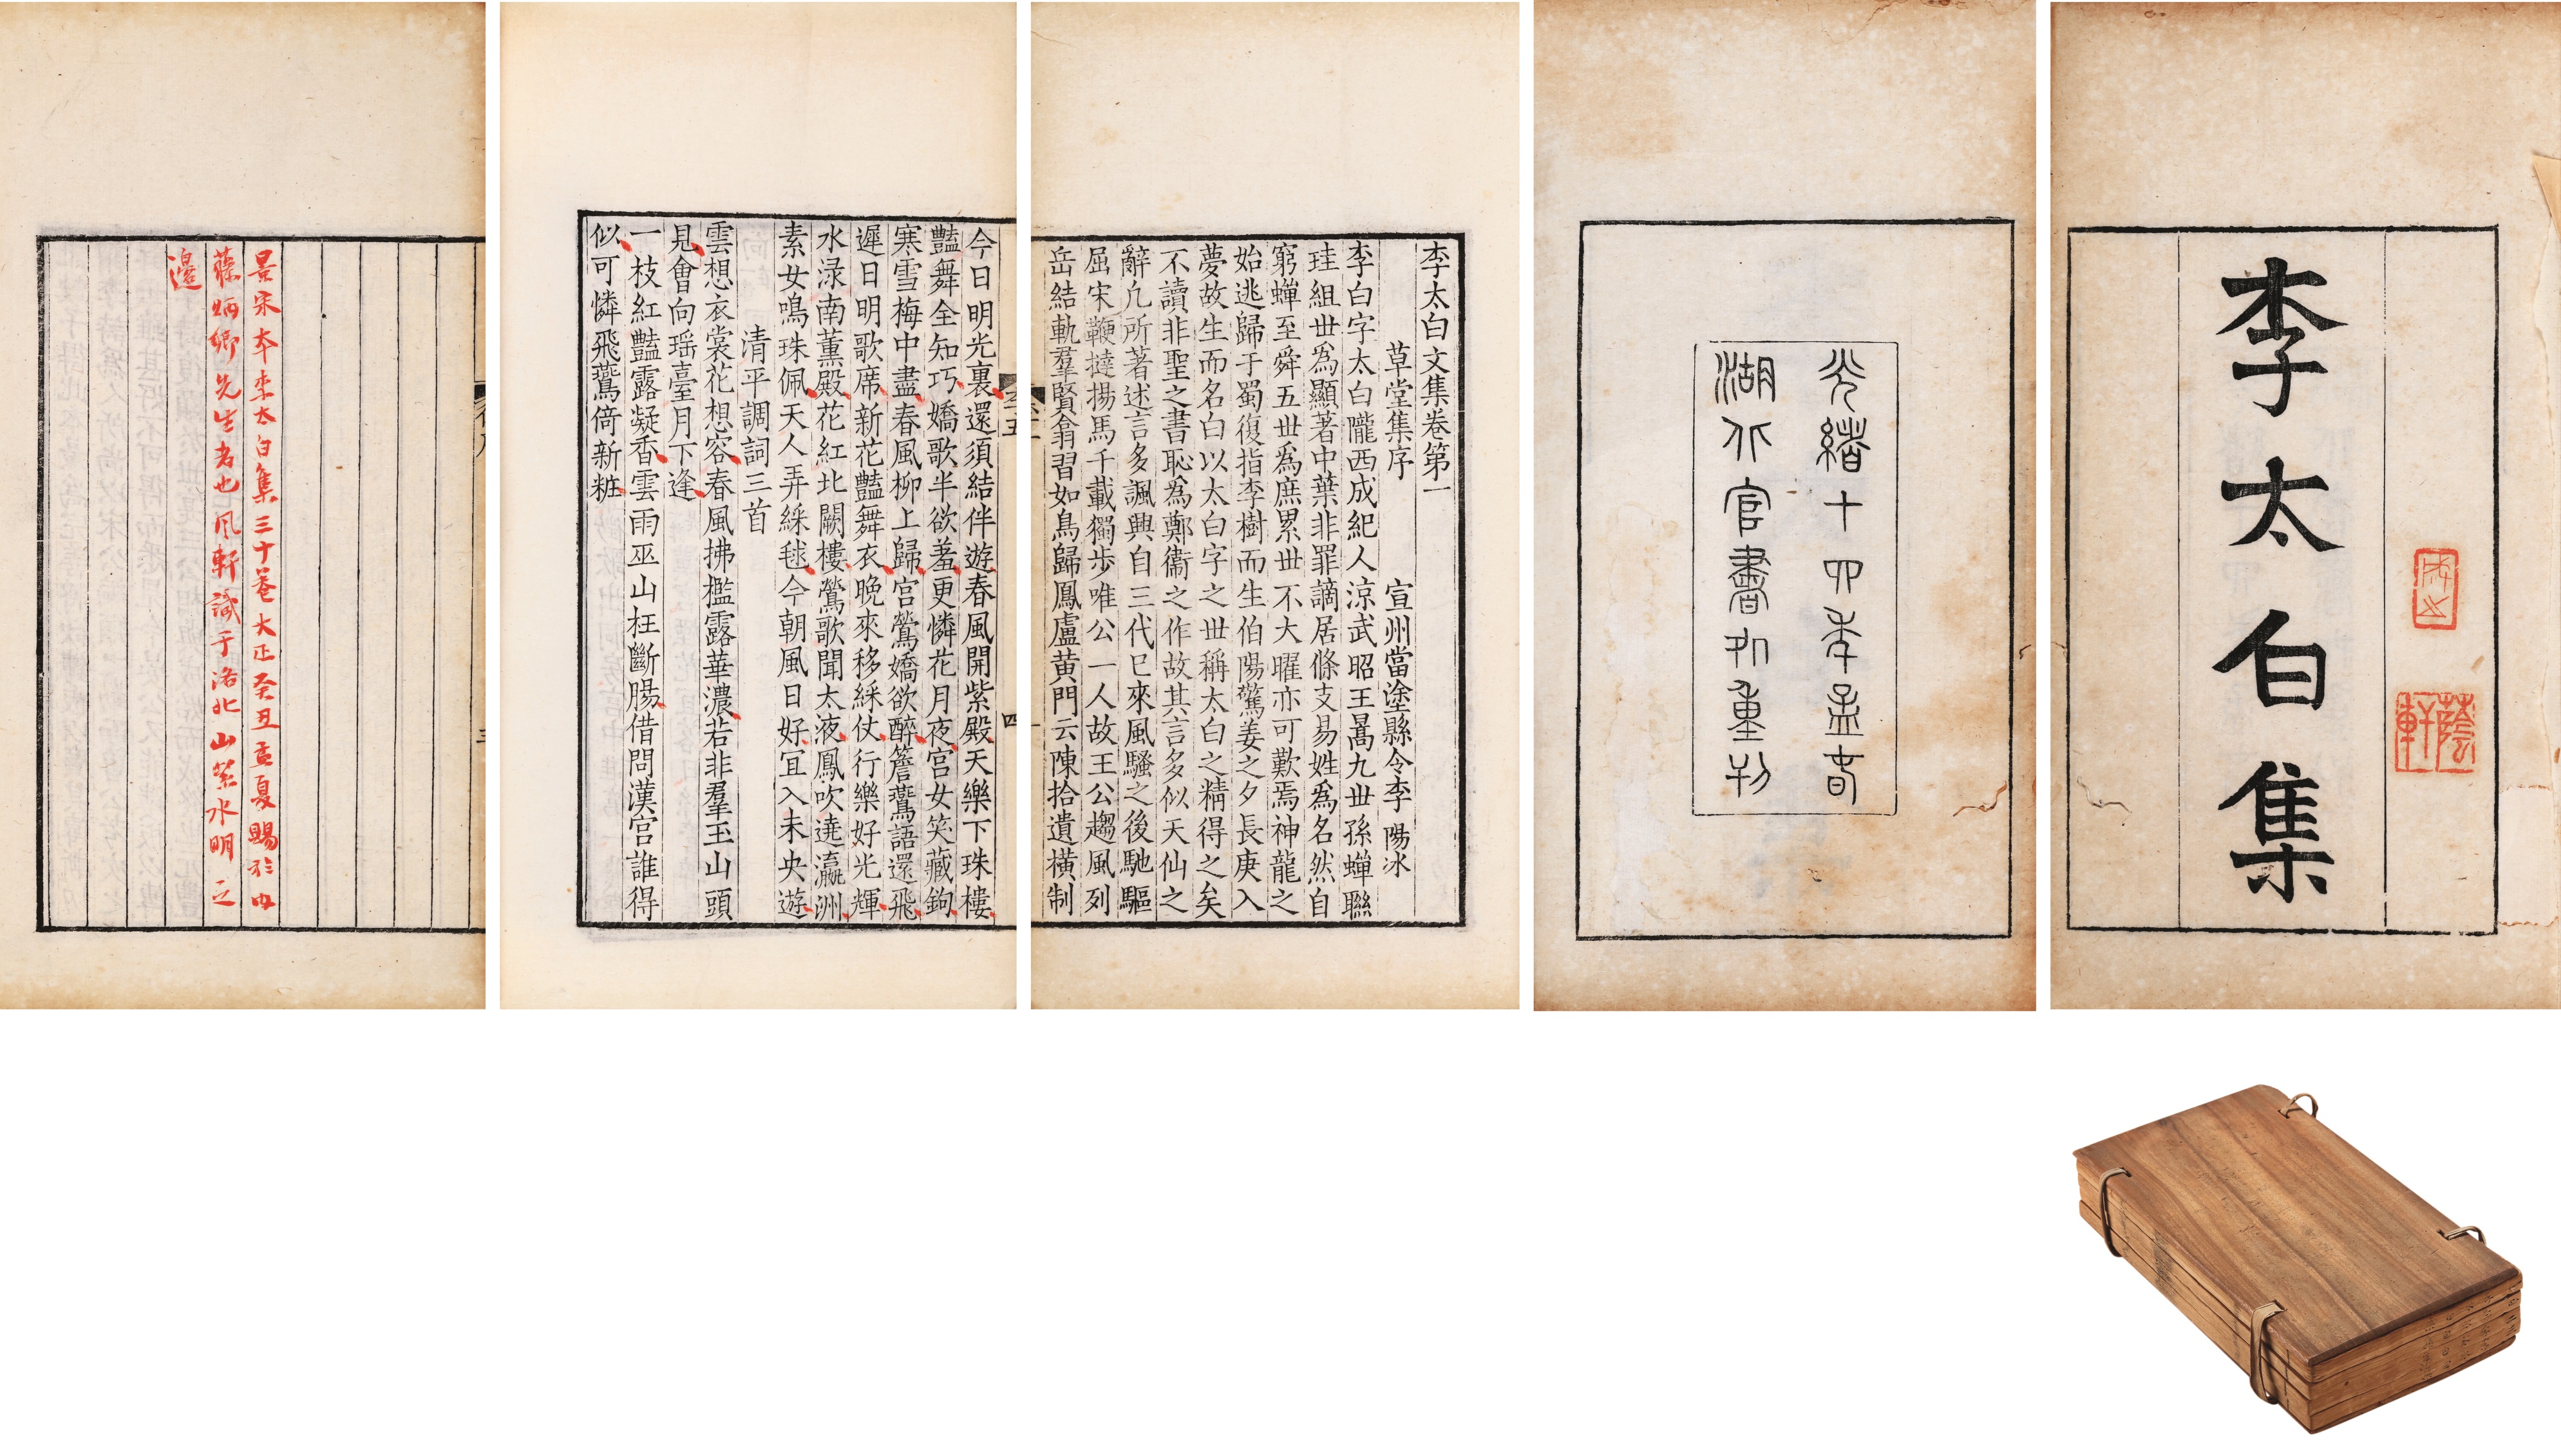 李太白集
蔭軒
光緒十四年孟春
湖北官書処重刊
李太白文集卷第一
草堂集序 宣州當塗縣令李陽冰
李白字太白隴西成紀人涼武昭王暠九世孫蟬聯
珪組世爲顯著中葉非罪謫居條支易姓爲名然自
窮蟬至舜五世爲庶累世不大曜亦可歎焉神龍之
始逃歸于蜀復指李樹而生伯陽驚姜之夕長庚入
夢故生而名白以太白字之世稱太白之精得之矣
不讀非聖之書恥爲鄭衞之作故其言多似天仙之
辭凡所著述言多諷興自三代已來風騷之後馳驅
屈宋鞭撻揚馬千載獨步唯公一人故王公趨風列
岳結軌羣賢翕習如鳥歸鳳盧黃門云陳拾遺橫制
今日明光裏還須結伴遊春風開紫殿天樂下珠樓
豔舞全知巧嬌歌半欲羞更憐花月夜宮女笑藏鉤
寒雪梅中盡春風柳上歸宮鶯嬌欲醉簷鷰語還飛
遲日明歌席新花豔舞衣晚來移綵仗行樂好光輝
水淥南薰殿花紅北闕樓鶯歌聞太液鳳吹遶瀛洲
素女鳴珠佩天人弄綵毬今朝風日好宜入未央遊
清平調詞三首
雲想衣裳花想容春風拂檻露華濃若非羣玉山頭
見會向瑶臺月下逢
一枝紅豔露凝香雲雨巫山枉斷腸借問漢宮誰得
似可憐飛鷰倚新粧
四
景宋本李太白集三十卷大正癸丑孟夏賜於内
藤炳卿先生者也風軒識于洛北山紫水明之
邊